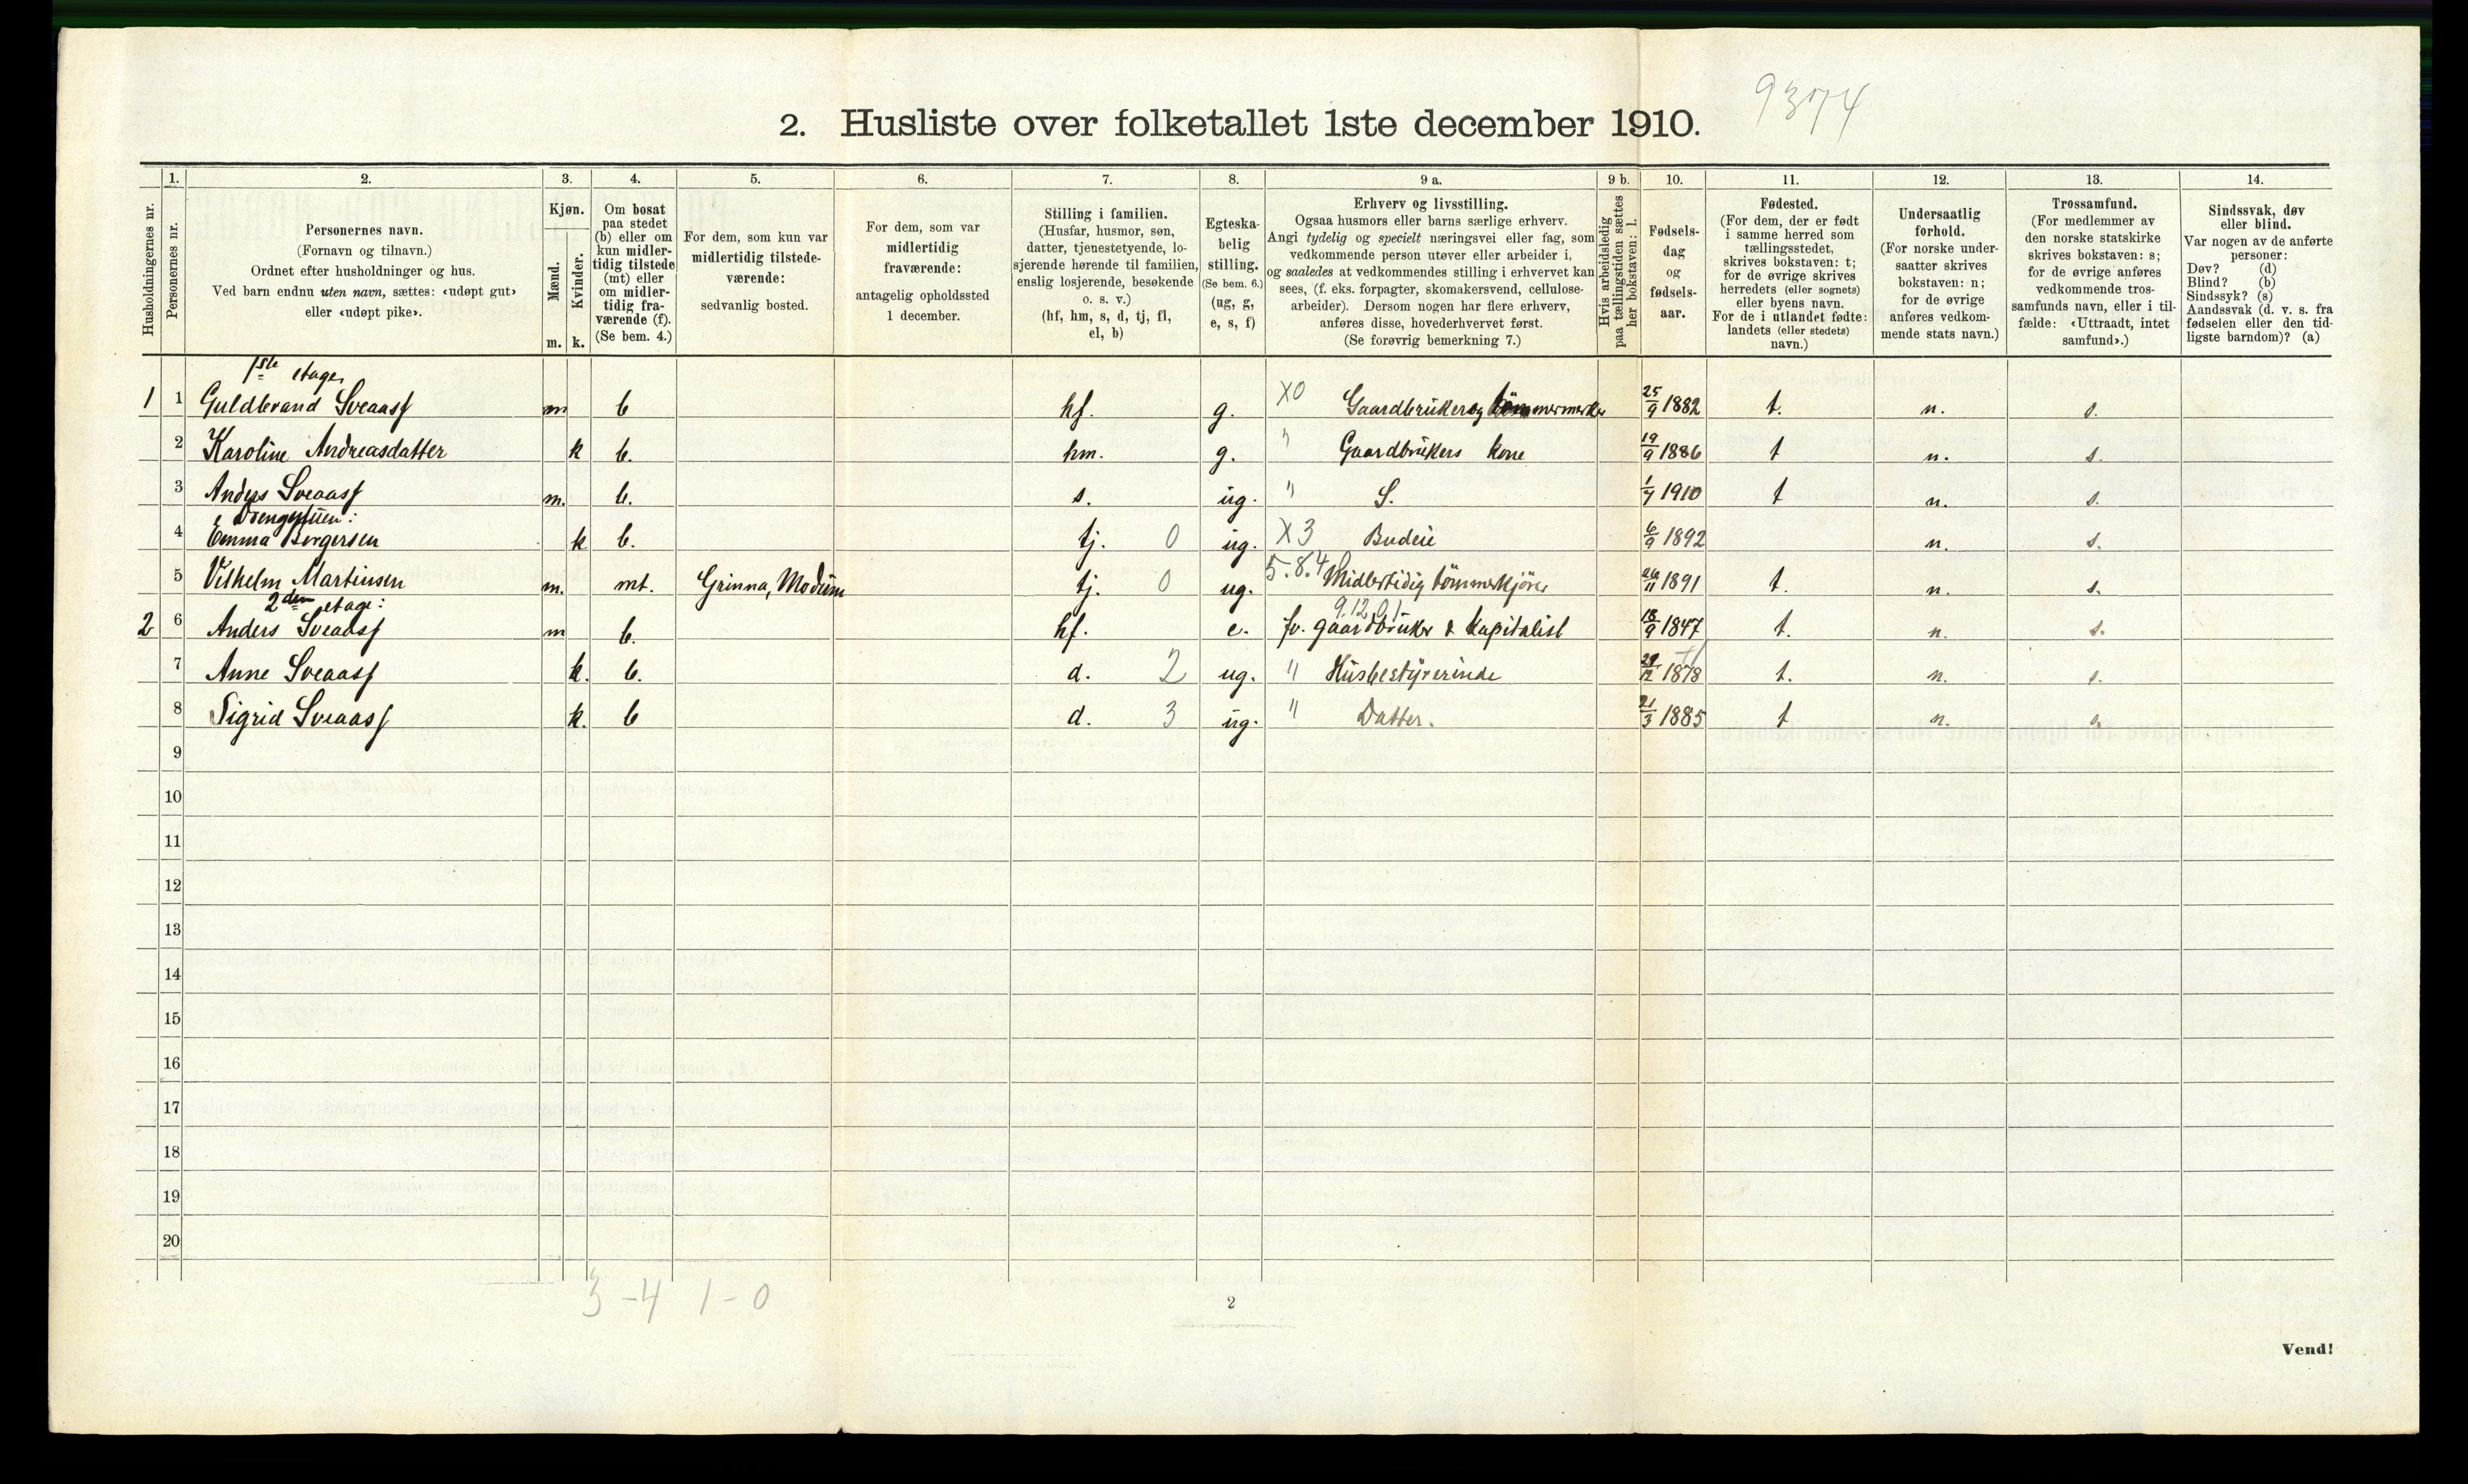 9374
2. Husliste over folketallet 1ste december 1910.
Husholdningernes nr.
1.
Personernes nr.
2.
Personernes navn.
(Fornavn og tilnavn.)
Ordnet efter husholdninger og hus.
Ved barn endnu uten navn, sættes: «udøpt gut»
eller «udøpt pike».
3.
Kjøn.
Mænd.
Kvinder.
m. k.
4.
Om bosat
paa stedet
(b) eller om
kun midler-
tidig tilstede
(mt) eller
om midler-
tidig fra-
værende (f).
(Se bem. 4.)
5.
For dem, som kun var
midlertidig tilstede-
værende:
sedvanlig bosted.
6.
For dem, som var
midlertidig
fraværende:
antagelig opholdssted
1 december.
7.
Stilling i familien.
(Husfar, husmor, søn,
datter, tjenestetyende, lo-
sjerende hørende til familien,
enslig losjerende, besøkende
o. s. v.)
(hf, hm, s, d, tj, fl,
el, b)
8.
Egteska-
belig
stilling.
(Se bem. 6.)
(ug, g,
e, s, f)
9 a.
Erhverv og livsstilling.
Ogsaa husmors eller barns særlige erhverv.
Angi tydelig og specielt næringsvei eller fag, som
vedkommende person utøver eller arbeider i,
og saaledes at vedkommendes stilling i erhvervet kan
sees, (f. eks. forpagter, skomakersvend, cellulose-
arbeider). Dersom nogen har flere erhverv,
anføres disse, hovederhvervet først.
(Se forøvrig bemerkning 7.)
9 b.
Hvis arbeidsledig
paa tællingstiden sættes
her bokstaven: l.
10.
Fødsels-
dag
og
fødsels-
aar.
11.
Fødested.
(For dem, der er født
i samme herred som
tællingsstedet,
skrives bokstaven: t;
for de øvrige skrives
herredets (eller sognets)
eller byens navn.
For de i utlandet fødte:
landets (eller stedets)
navn.)
12.
Undersaatlig
forhold.
(For norske under-
saatter skrives
bokstaven: n;
for de øvrige
anføres vedkom-
mende stats navn.)
13.
Trossamfund.
(For medlemmer av
den norske statskirke
skrives bokstaven: s;
for de øvrige anføres
vedkommende tros-
samfunds navn, eller i til-
fælde: «Uttraadt, intet
samfund».)
14.
Sindssvak, døv
eller blind.
Var nogen av de anførte
personer:
Døv? (d)
Blind? (b)
Sindssyk? (s)
Aandssvak (d. v. s. fra
fødselen eller den tid-
ligste barndom)? (a)
1ste etage,
1 1 Guldbrand Sveaas m b hf. g. X0 Gaardbruker og tömmermerker 25/9 1882 t. n. s.
2 Karoline Andreasdatter k b. hm. g. " Gaardbrukers kone 19/9 1886 t n. s.
3 Anders Sveaas m. b. s. ug. " S. 1/7 1910 t n. s.
i Drengestuen:
4 Emma Borgersen k b. tj. 0 ug. X3 Budeie 6/9 1892 n. s.
5 Vilhelm Martinsen m. mt. Grinna, Modum tj. 0 ug. 5.8.4 Midlertidig tömmerkjörer 26/11 1891 t. n. s.
2den etage:
9.12.0.1
2 6 Anders Sveaas m b. hf. e. fv. gaardbruker & kapitalist 18/9 1847 t. n. s.
7 Anne Sveaas k. b. d. 2 ug. " Husbestyrerinde 29/12 1878 t. n. s.
8 Sigrid Sveaas k. b d. 3 ug. " Datter. 21/3 1885 t n. s.
9
10
11
12
13
14
15
16
17
18
19
20
3 - 4 1 - 0
2
Vend!